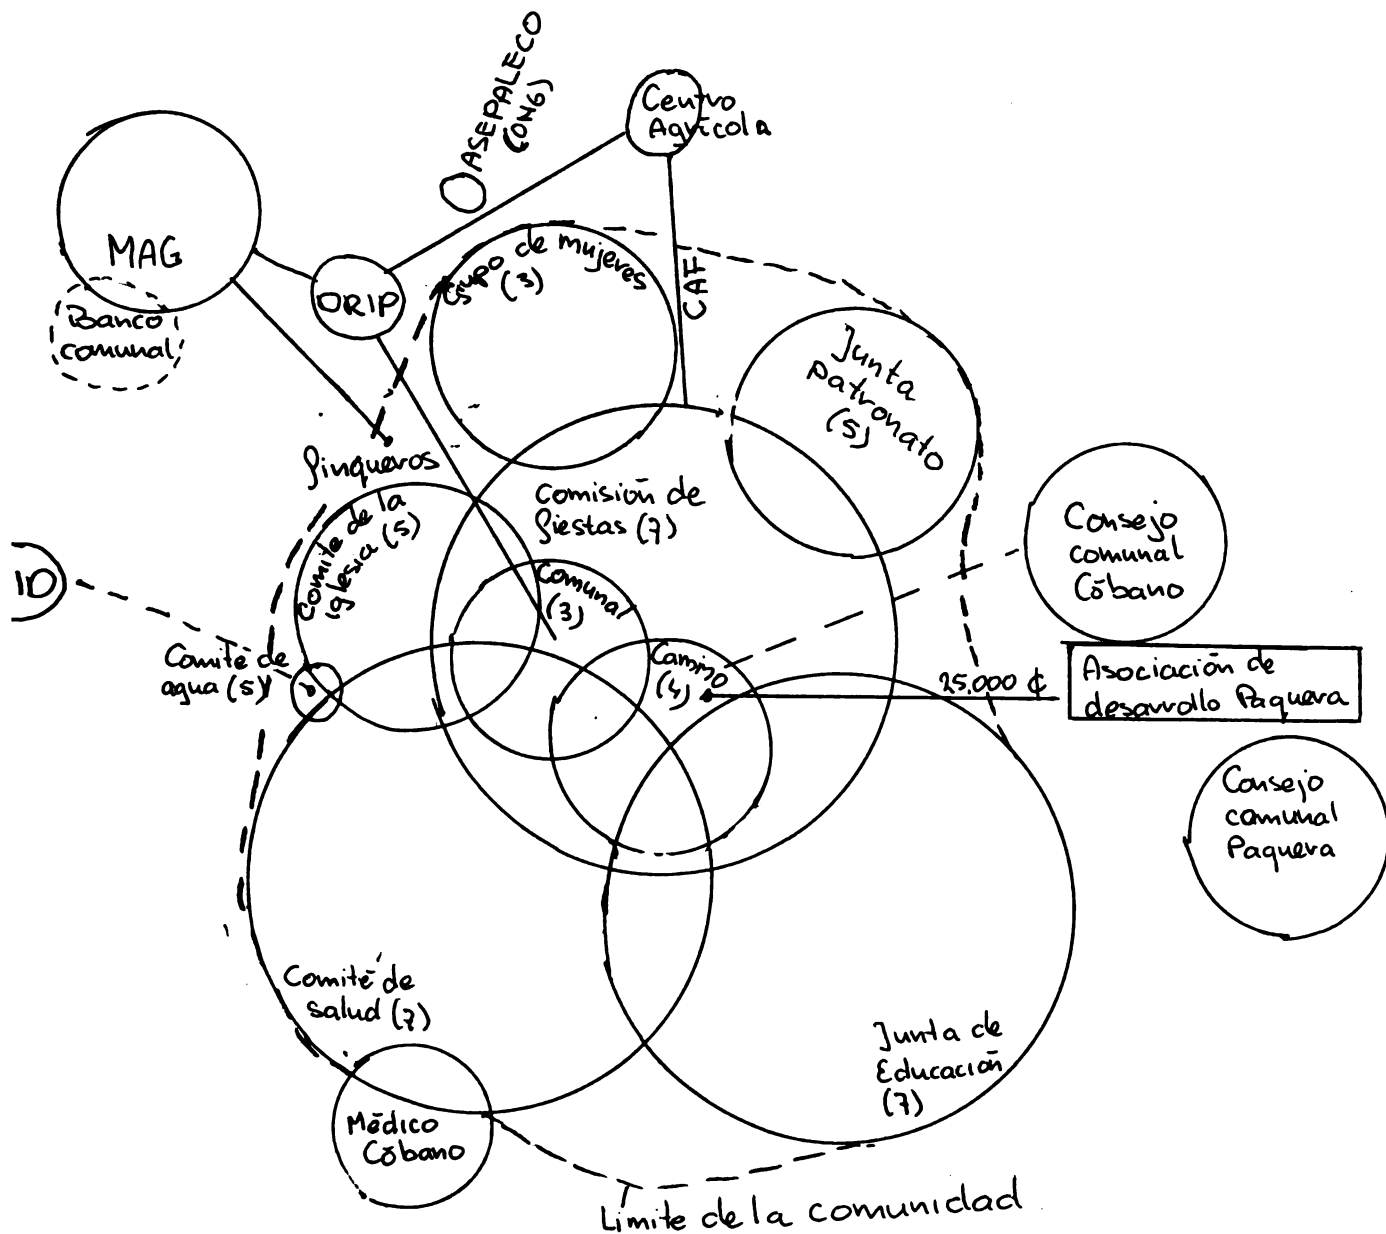 ASEPALECO
(ONG)
Centro
Agrícola
MAG
Banco
comunal
DRIP
Grupo de mujeres
(3)
CAF
Junta
patronato
(5)
finqueros
Comisión de
fiestas (7)
Comité de la
iglesia (5)
Consejo
comunal
Cóbano
ID
Comunal
(3)
Comité de
agua (5)
Camino
(4)
25.000 ₡
Asociación de
desarrollo Paquera
Consejo
comunal
Paquera
Comité de
salud (7)
Junta de
Educación
(7)
Médico
Cóbano
Límite de la comunidad